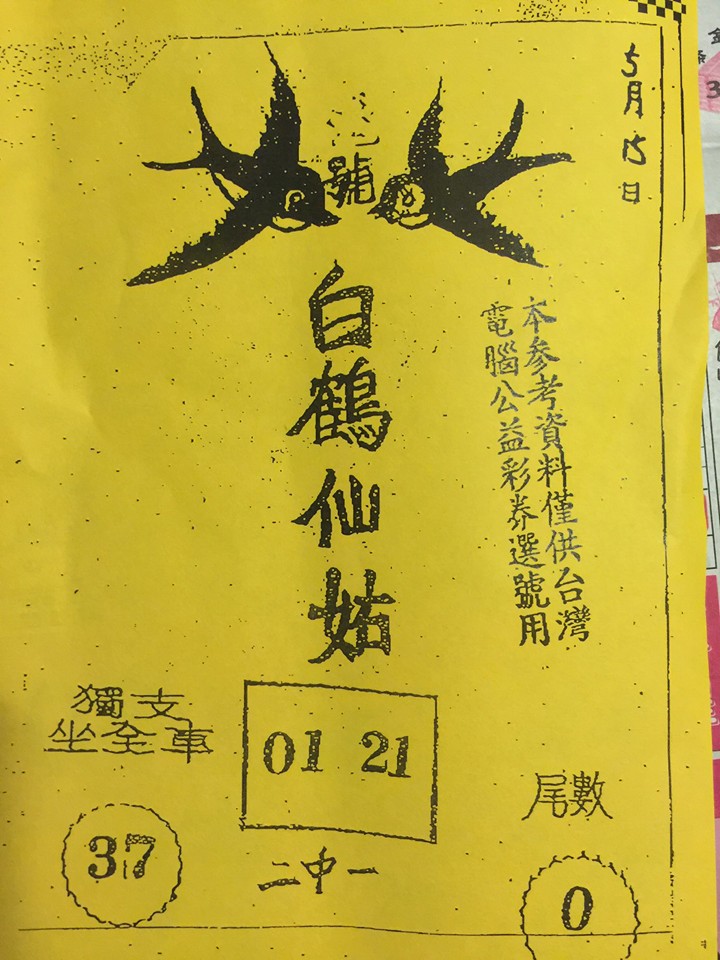 5月15日
號
白鶴仙姑
本参考資料僅供台灣
電腦公益彩券選號用
獨支
坐全車
37
01 21
二中一
尾數
0
3